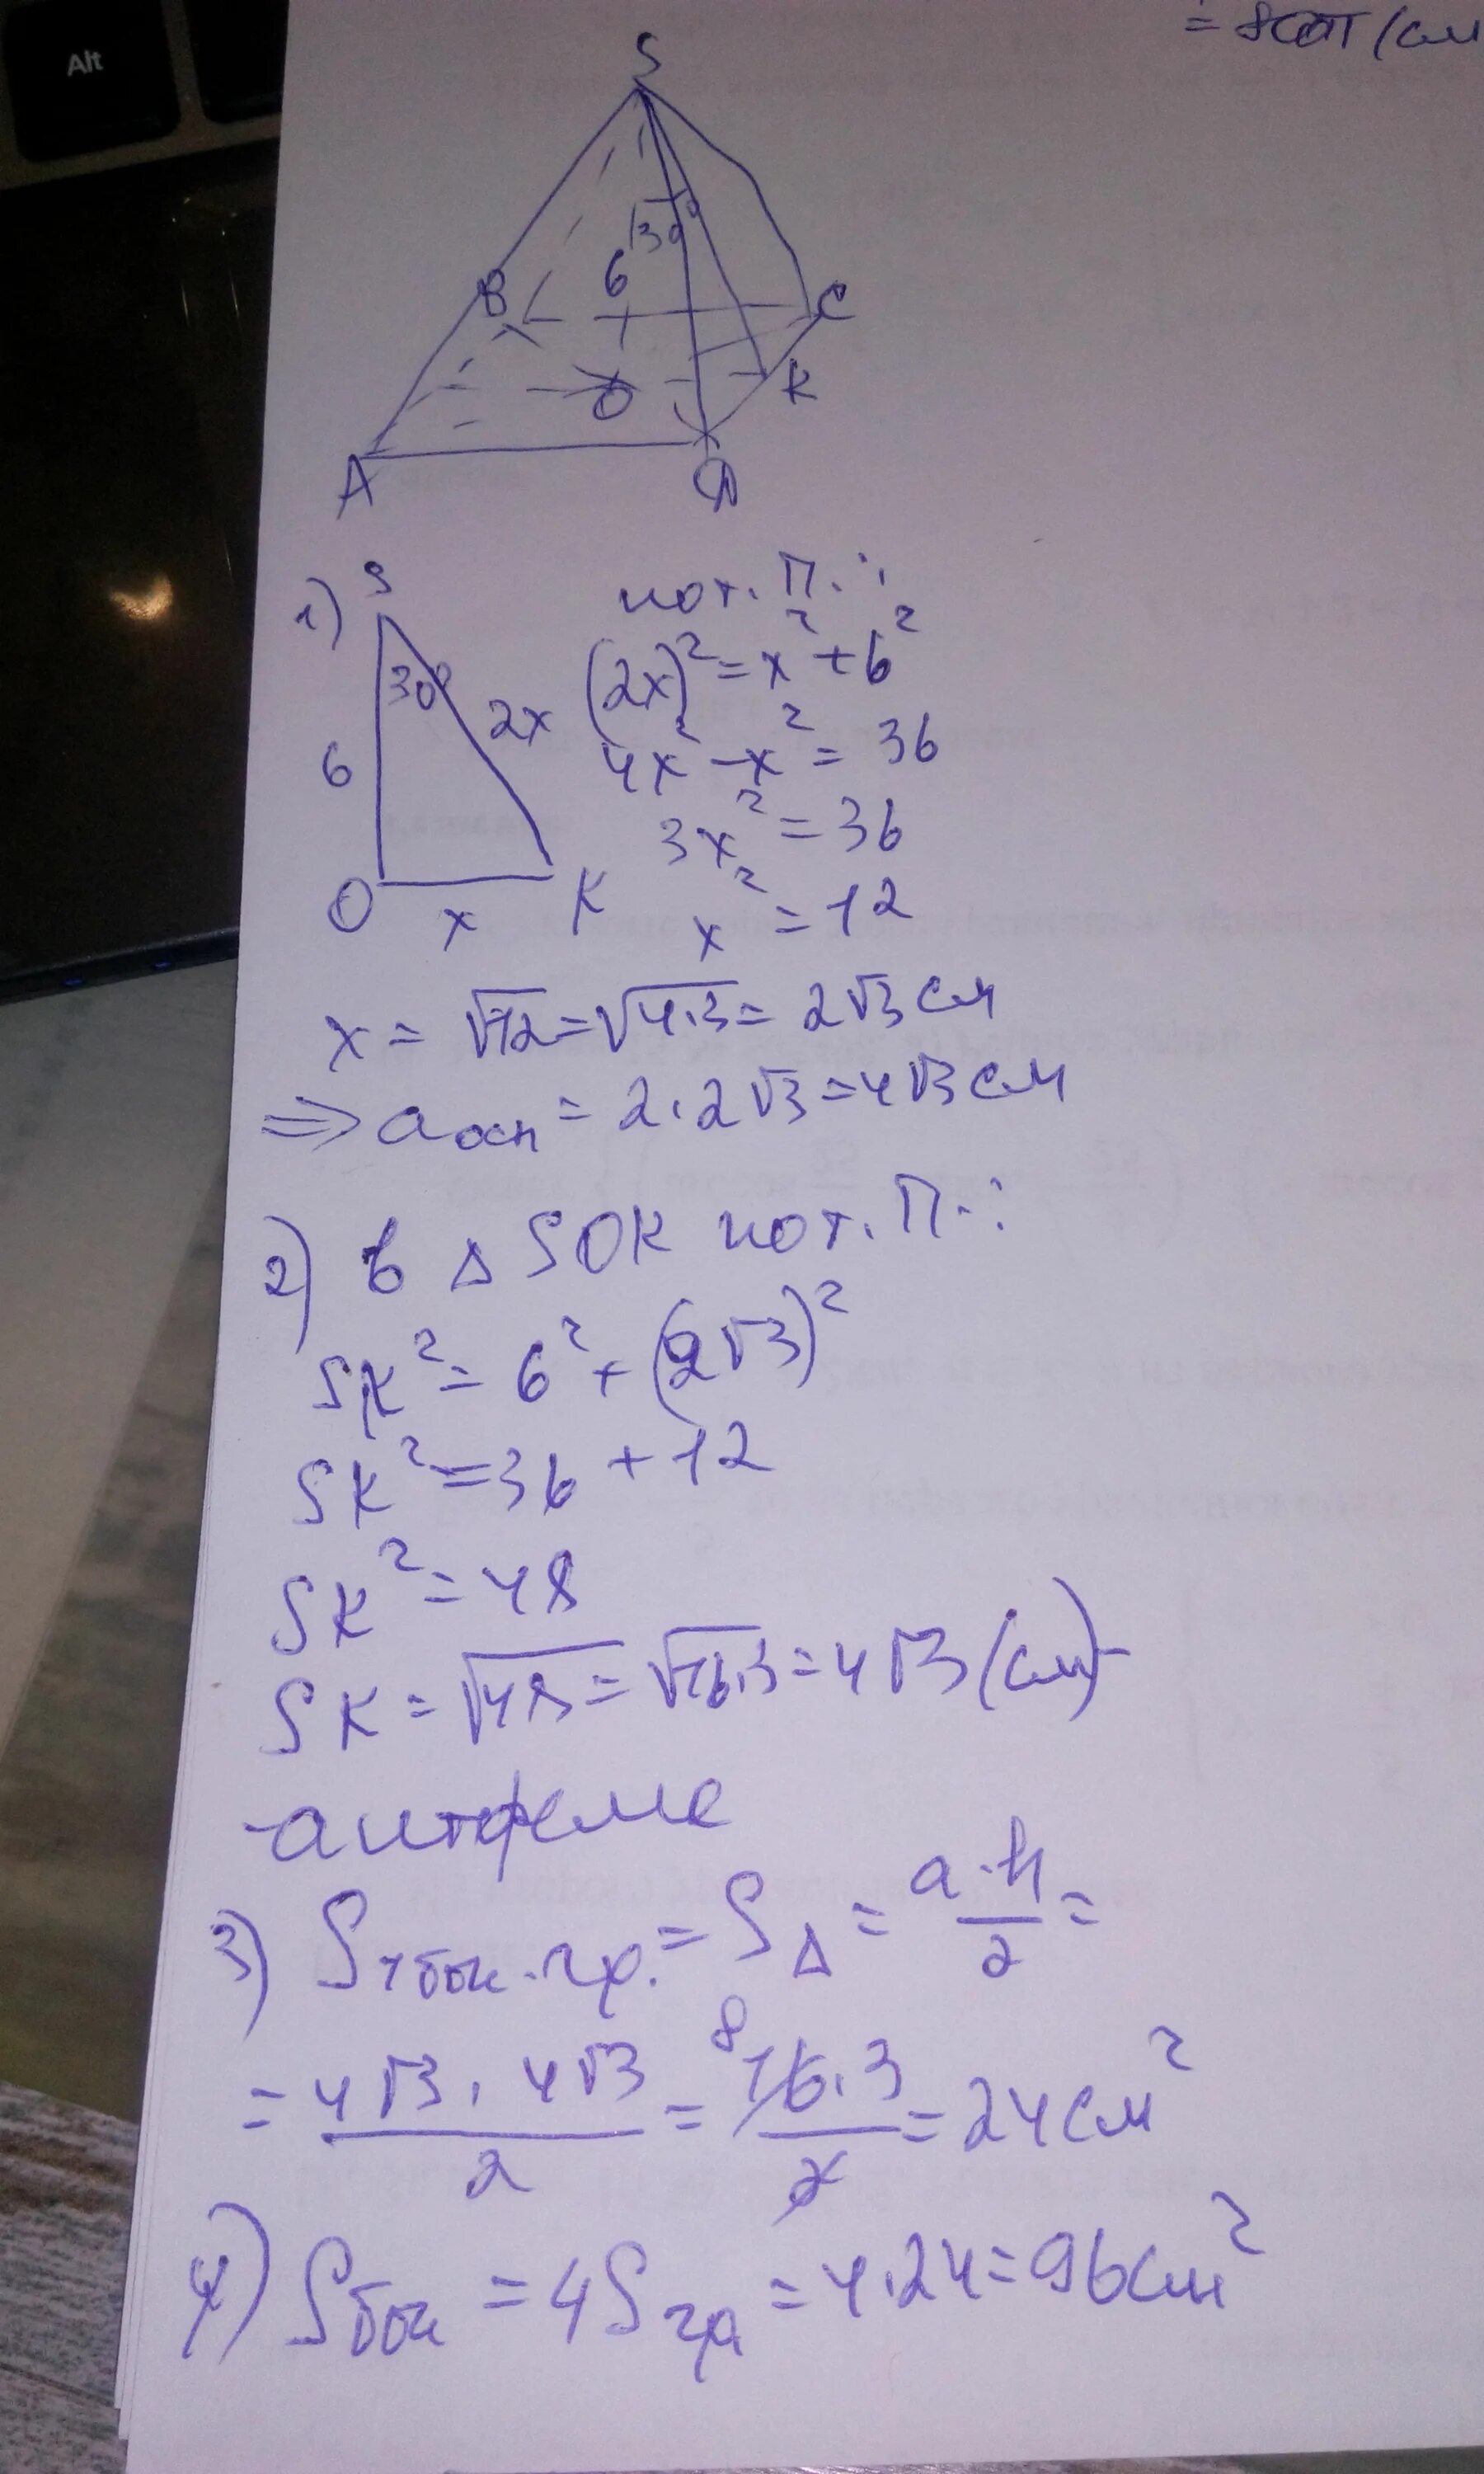 Alt
S
30°
6
B
C
O
K
A
D
1)
S
30°
6
2x
O
x
K
по т. П.:
(2x)² = x² + 6²
4x² - x² = 36
3x² = 36
x² = 12
x = √12 = √4·3 = 2√3 см
⇒ a осн = 2·2√3 = 4√3 см
2) в Δ SOK по т. П.:
SK² = 6² + (2√3)²
SK² = 36 + 12
SK² = 48
SK = √48 = √16·3 = 4√3 (см) -
- апофема
3) S 1 бок. гр. = S Δ = a·h/2 =
= 4√3 · 4√3 / 2 = 16·3/2 = 24 см²
8
4) S бок = 4S гр = 4·24 = 96 см²